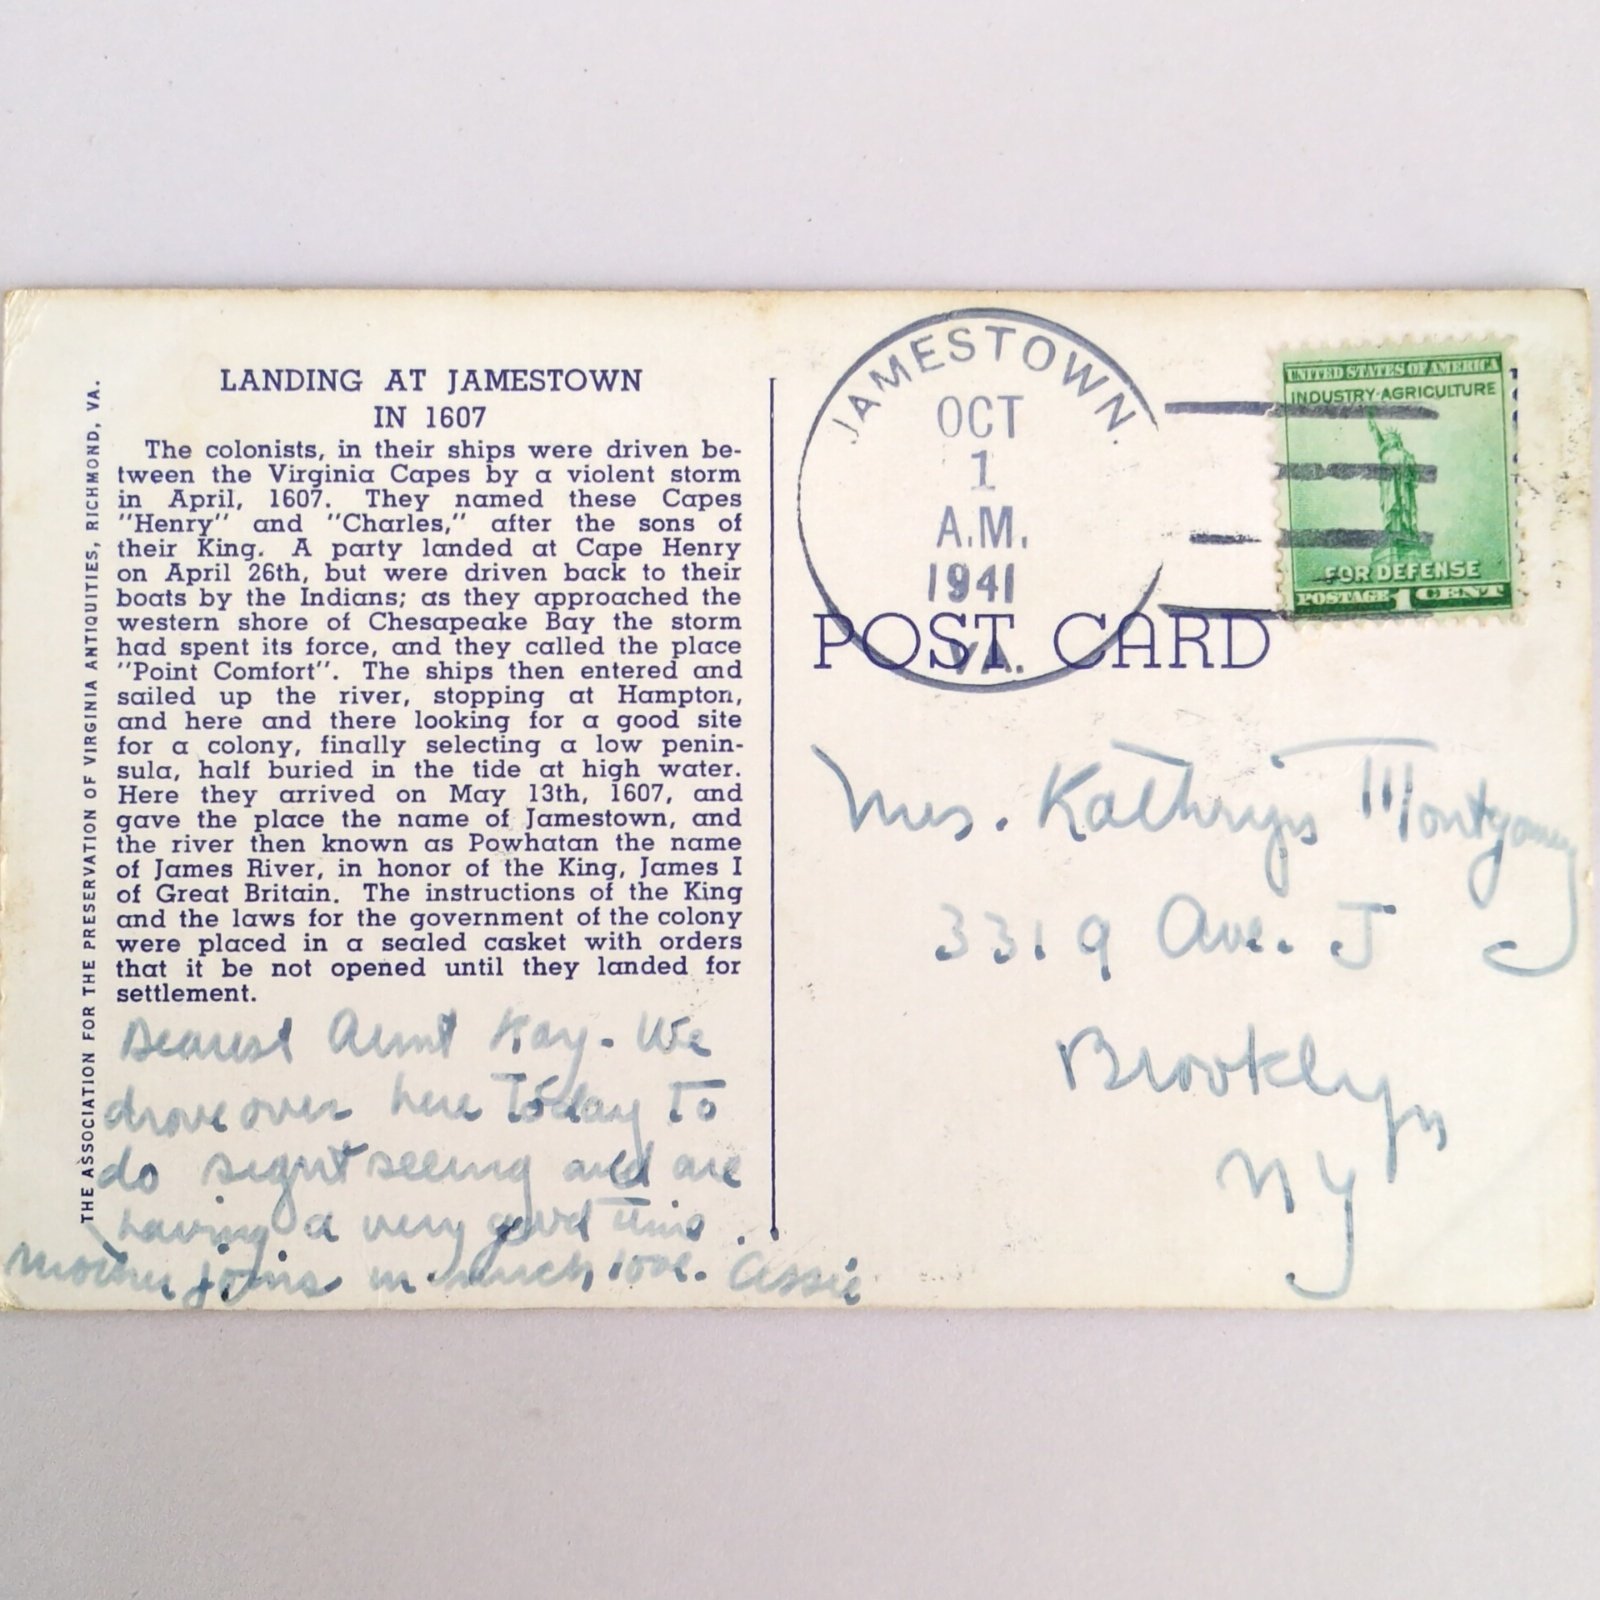 THE ASSOCIATION FOR THE PRESERVATION OF VIRGINIA ANTIQUITIES, RICHMOND, VA.
LANDING AT JAMESTOWN
IN 1607
The colonists, in their ships were driven be-
tween the Virginia Capes by a violent storm
in April, 1607. They named these Capes
"Henry" and "Charles," after the sons of
their King. A party landed at Cape Henry
on April 26th, but were driven back to their
boats by the Indians; as they approached the
western shore of Chesapeake Bay the storm
had spent its force, and they called the place
"Point Comfort". The ships then entered and
sailed up the river, stopping at Hampton,
and here and there looking for a good site
for a colony, finally selecting a low penin-
sula, half buried in the tide at high water.
Here they arrived on May 13th, 1607, and
gave the place the name of Jamestown, and
the river then known as Powhatan the name
of James River, in honor of the King, James I
of Great Britain. The instructions of the King
and the laws for the government of the colony
were placed in a sealed casket with orders
that it be not opened until they landed for
settlement.
Dearest Aunt Kay. We
drove over here today to
do sight seeing and are
having a very good time.
Mother joins in much love. Cissie
JAMESTOWN.
OCT
1
A.M.
1941
VA.
UNITED STATES OF AMERICA
INDUSTRY·AGRICULTURE
FOR DEFENSE
POSTAGE 1 CENT
POST CARD
Mrs. Kathryn Montgomery
3319 Ave. J
Brooklyn
NY